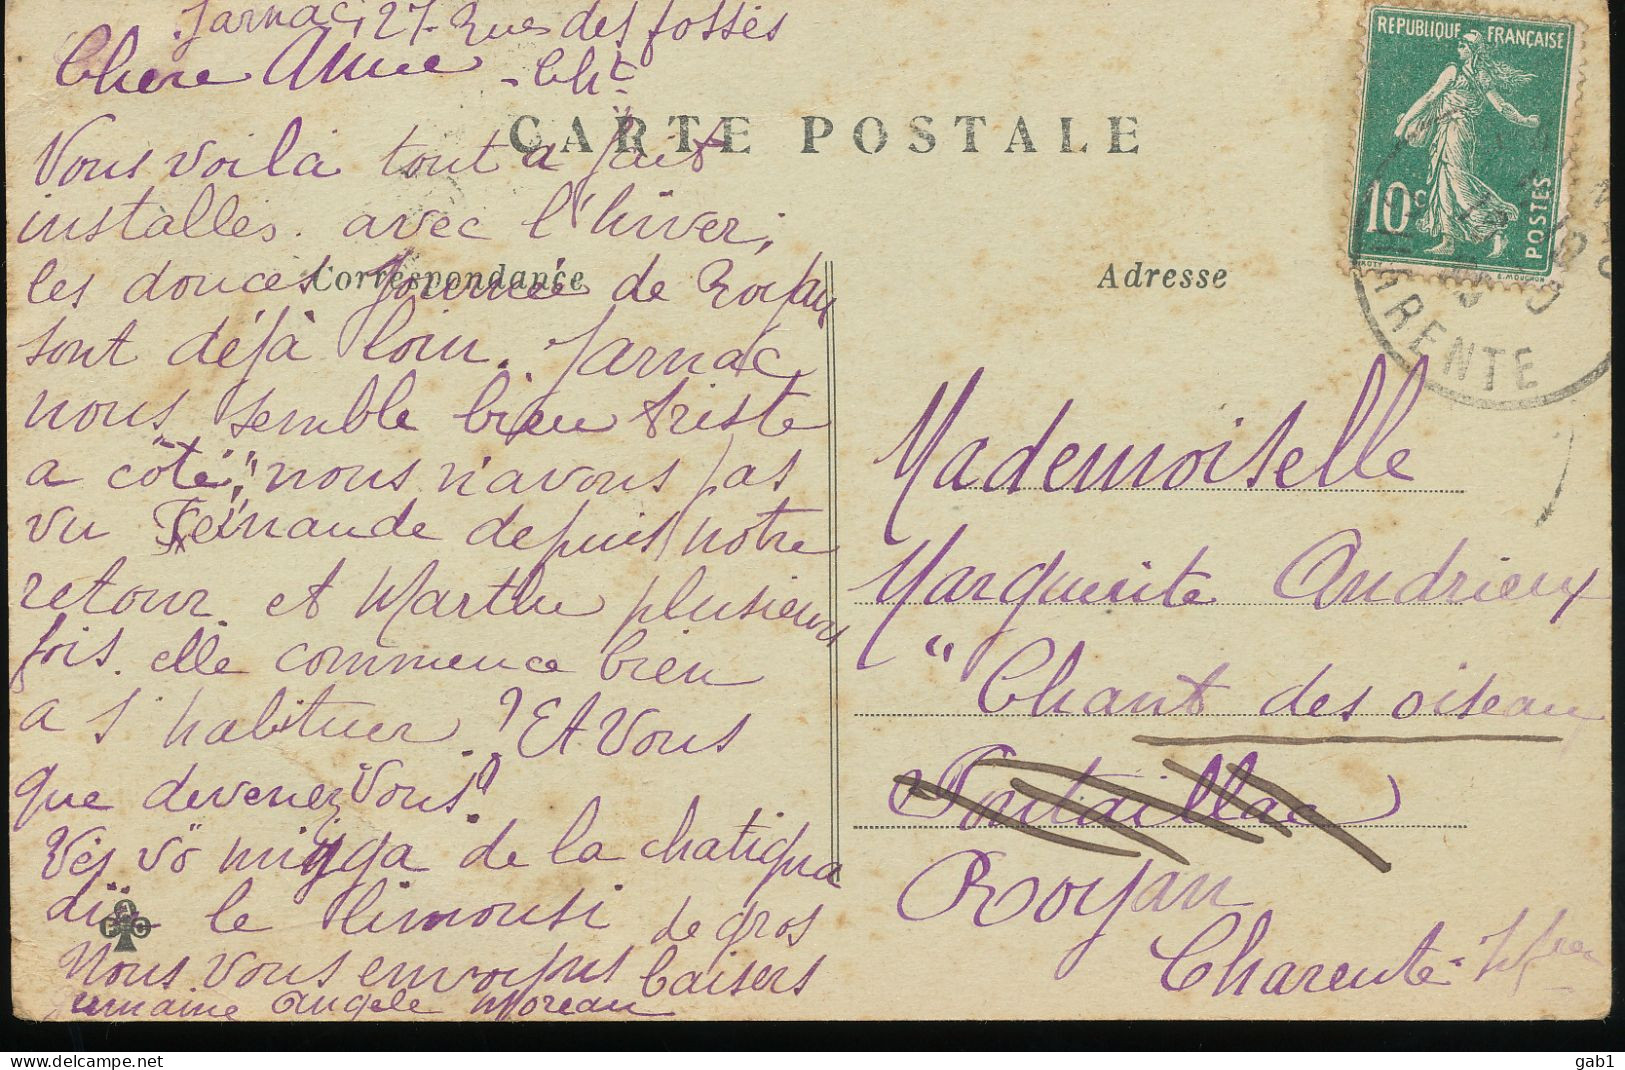 Jarnac, 27 Rue des fossés
Chère Amie - Chte
CARTE POSTALE
Vous voilà tout a fait
installés. avec l'hiver;
les douces journée de Royan
sont déjà loin. Jarnac
nous semble bien triste
a côté, nous n'avons pas
vu Fernande depuis notre
retour. et Marthe plusieurs
fois. elle commence bien
a s'habituer.? Et Vous
que devenez Vous?
Vès vo minga de la chatigna
din le limousi de gros
Nous Vous envoyons baisers
Germaine Angèle Moreau
Correspondance
Adresse
REPUBLIQUE FRANÇAISE
10c
POSTES
ROTY
E. MOUCHON
CHARENTE
Mademoiselle
Marguerite Andrieux
"Chant des oiseaux
Pontaillac
Royan
Charente-Infre
gab1